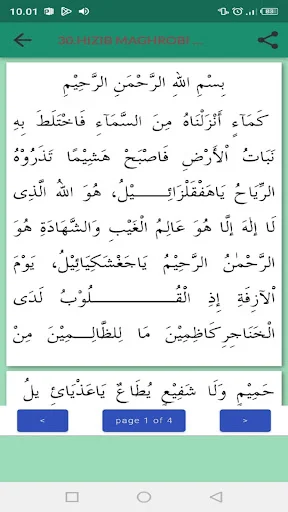 10.01
30.HIZIB MAGHROBI ...
بِسْمِ اللهِ الرَّحْمٰنِ الرَّحِيْمِ
كَمَآءٍ أَنْزَلْنَاهُ مِنَ السَّمَآءِ فَاخْتَلَطَ بِهِ
نَبَاتُ الْأَرْضِ فَاصْبَحَ هَشِيْمًا تَذَرُوْهُ
الرِّيَاحُ يَاهَفْقَلْزَائِيْلُ، هُوَ اللهُ الَّذِى
لَا إِلٰهَ إِلَّا هُوَ عَالِمُ الْغَيْبِ وَالشَّهَادَةِ هُوَ
الرَّحْمٰنُ الرَّحِيْمُ يَاجَغْشَكِيَائِيْلُ، يَوْمَ
الْآزِفَةِ إِذِ الْقُلُوْبُ لَدَى
الْخَنَاجِرِكَاظِمِيْنَ مَا لِلظَّالِمِيْنَ مِنْ
حَمِيْمٍ وَلَا شَفِيْعٍ يُطَاعُ يَاعَذْيَائِ يلُ
< page 1 of 4 >